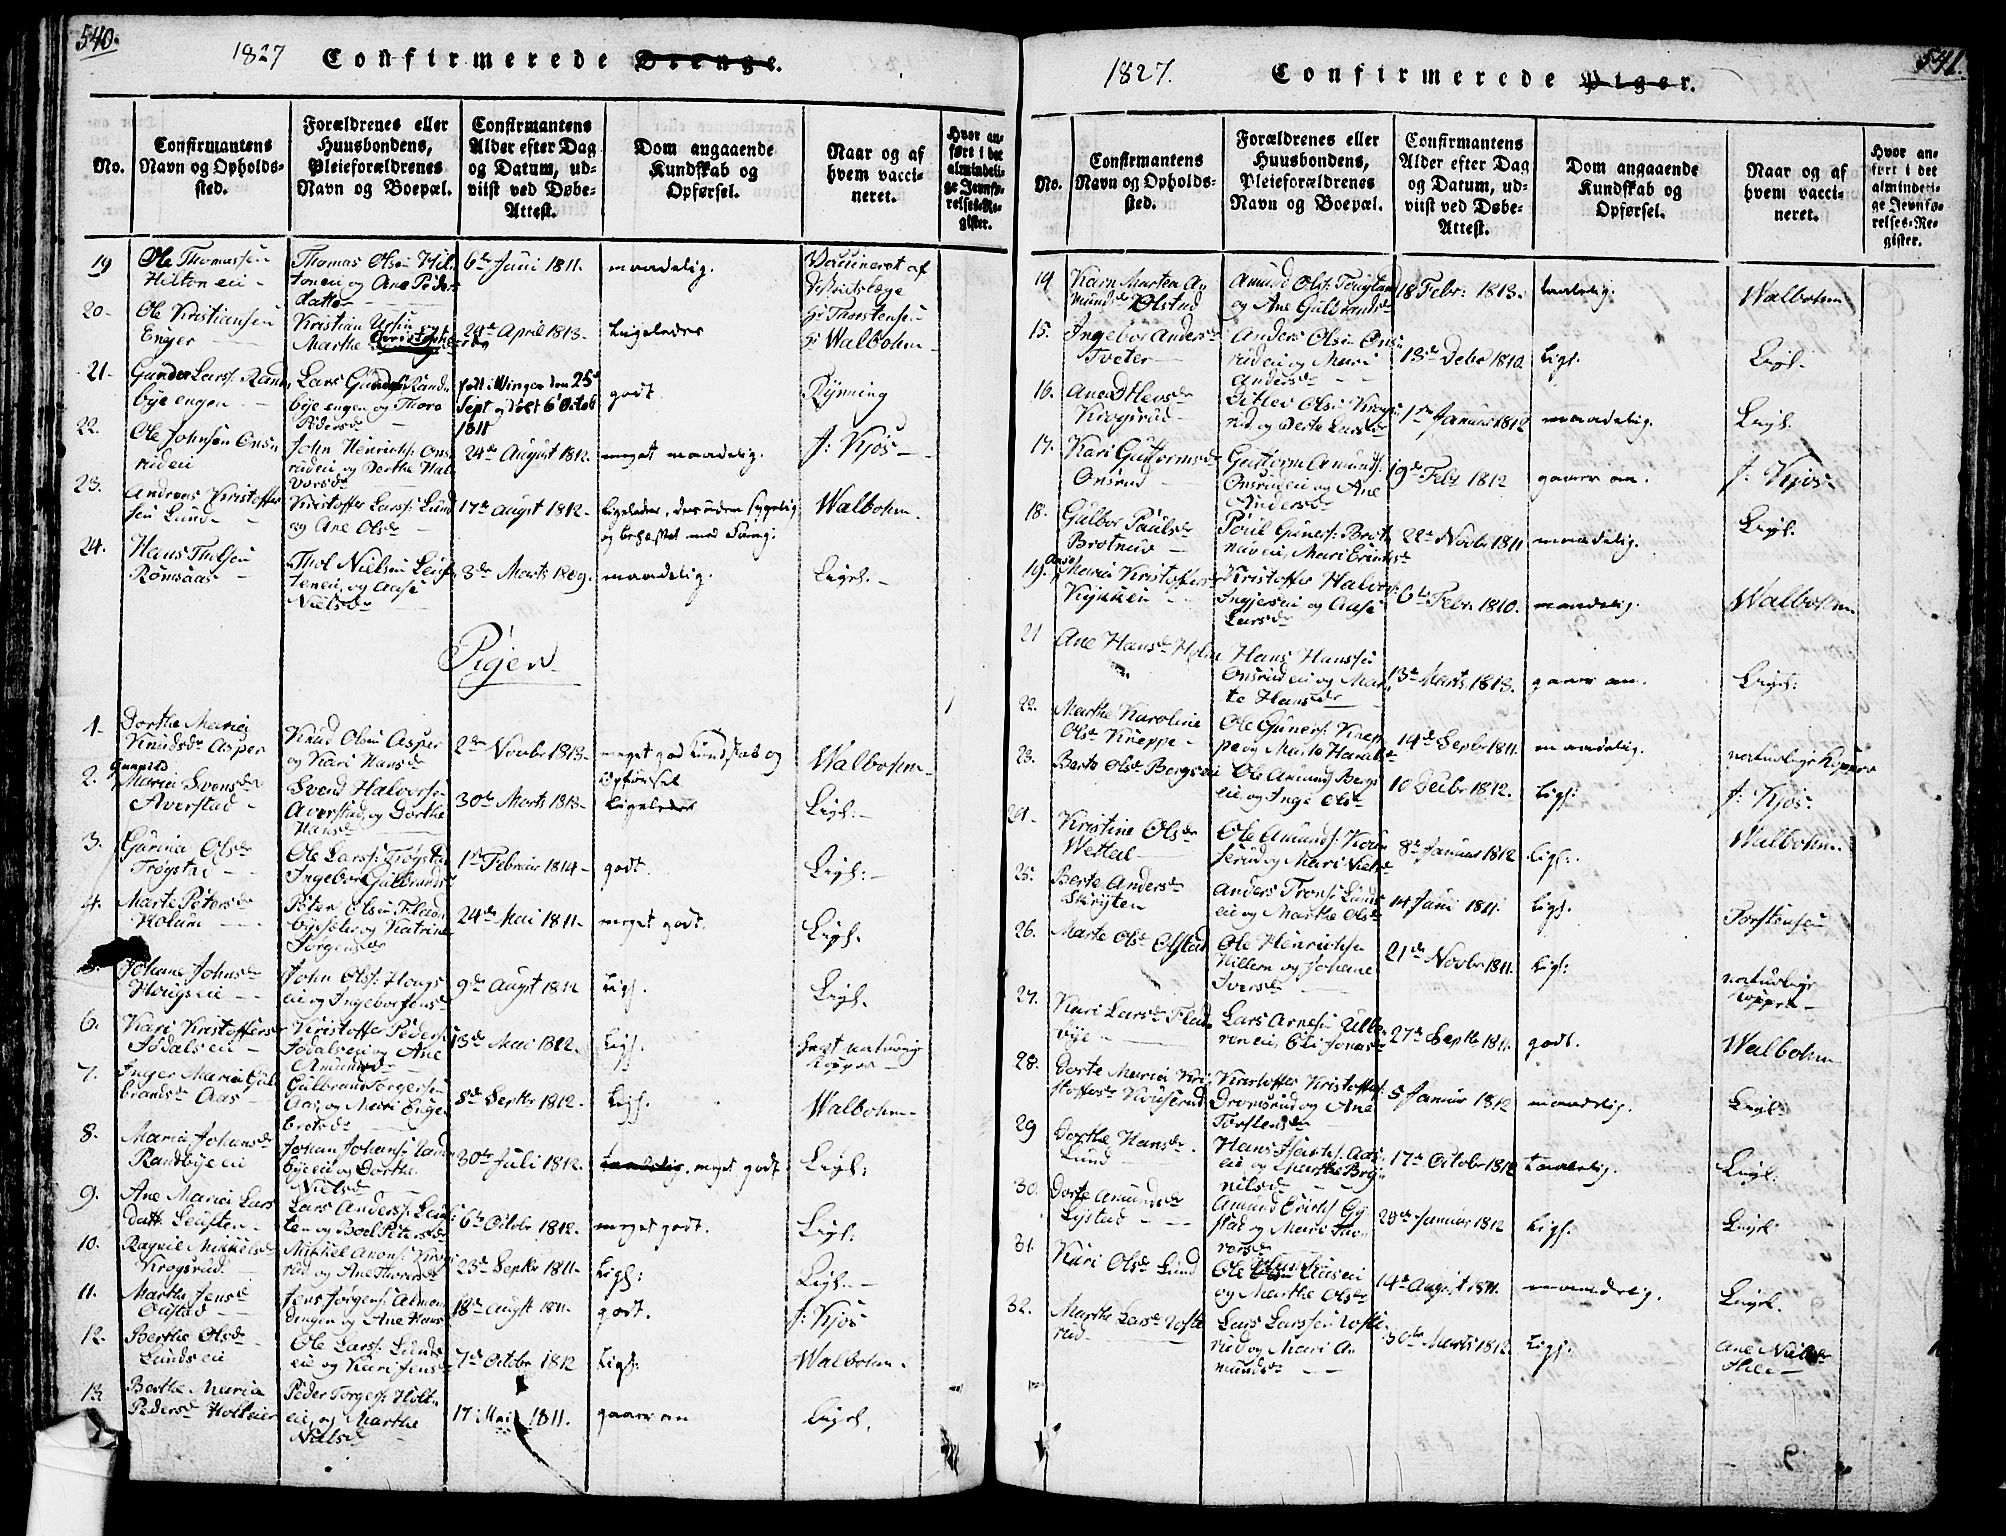 540.
1827 Confirmerede Drenge.
No.
Confirmantens
Navn og Opholds-
sted.
Forældrenes eller
Huusbondens,
Pleieforældrenes
Navn og Boepæl.
Confirmantens
Alder efter Dag
og Datum, ud-
viist ved Døbe-
Attest.
Dom angaaende
Kundskab og
Opførsel.
Naar og af
hvem vacci-
neret.
Hvor an-
ført i det
almindeli-
ge Jevnfø-
relses-Re-
gister.
19
Ole Thomassen
Hilton eie -
Thomas Olsen Hil-
ton eie og Ane Peders
datter
6te Juni 1811.
maadelig.
Vaccineret af
20-
Ole Kristiansen
Enger
Kristian
Marthe
24de April 1813-
Ligeledes
Hr Thorstensen
Hr Walbohm-
21-
Gunder Larss. Rand-
bye engen
Lars Rand-
bye engen og Thore
Pedersdr
født i Winger den 25de
Sept og døbt 6te Octob
1811
godt.
Rynning
22.
Ole Johnsen Onsr
rud eie
John Henrichs. Ons
rud eie og Dorthe Hal-
vorsdr
24de August 1812.
meget maadelig.
J: Kjos-
23.
Andreas Kristoffer
sen Lund-
Kristoffer Larss. Lund
og Ane Olsdr
17de Augst 1812-
Ligeledes, desuden sygelig
og behæftet med
Walbohm.
24.
Hans Tholsen
Romsaas-
Thol Nielsen Leuf-
ten eie, og Aase
Nielsdr
3de Marts 1809.
maadelig.
Ligel.-
Piger
1-
Dorthe Maria
Knudsdr Asper
Knud Olsen Asper
og Kari Hansdr
2den Novbr 1813-
meget god Kundskab og
Opførsel
Walbohm-
2.
Gunild
Maria Svensdr
Averstad-
Svend Halvorsen
Averstad, og Dorthe
Hansdr
30te Marts 1813-
Ligeledes
Ligel:-
3.
Gurina Olsdr
Trøgstad
Ole Larss. Trøgstad
Ingebor Gulbrandsdr
1ste Februar 1814-
godt.
Ligel:-
4.
Marte Petersdr
Holum
Peter Olsen Flad-
byesæter og Katrine
Jørgensdr
24de Mai 1811.
meget godt.
Ligel.
Johane Johnsdr
Hougs eie
John Ols. Hougs
eie og Ingebor Jensdr
9de Augst 1812
Ligs.
Ligel.
6.
Kari Kristoffersdr
Jødals eie
Kristoffer Peders.
Jødals eie og Ane
Amundsdr
13de Mai 1812.
Ligs.
havt naturlig
Kopper
7.
Inger Maria Gul
brandsdr Aas
Gulbrand Torgersen
Aas, og Mari Enge-
bretsdr
8de Septbr 1812-
Ligs.
Walbohm-
8.
Maria Johansdr
Randbye eie
Johan Johans. Rand
bye eie og Dorthe
Nielsdr
30te Juli 1812.
taalelig. meget godt
Ligel:
9.
Ane Maria Lars
datt. Leuften-
Lars Anders. Leuf-
ten og Boel Petersdr
6te Octobr 1812.
meget godt.
Ligel:
10.
Ragnil Mikkelsdr
Krogsrud
Mikkel Krogs
rud og Ane Thoresdr
23de Septbr 1811-
Ligs:
Ligel.-
11.
Marthe Jensdr
Ougstad
Jens Jørgens. Almen-
dingen og Ane Hans
18de Augst 1811.
godt.
J: Kjos
12-
Berthe Olsdr
Lunds eie
Ole Larss. Lunds
eie og Kari Jensdr
7de October 1812
Ligs:
Walbohm.
13
Berthe Maria
Pedersdr Holt eier
Peder Torgers. Holt-
eie, og Marthe
Nielsdr
17 Mai 1811.
gaaer an
Ligel.
541.
1827. Confirmerede Piger.
No.
Confirmantens
Navn og Opholds-
sted.
Forældrenes eller
Huusbondens,
Pleieforældrenes
Navn og Boepæl.
Confirmantens
Alder efter Dag
og Datum, ud-
viist ved Døbe-
Attest.
Dom angaaende
Kundskab og
Opførsel.
Naar og af
hvem vacci-
neret.
Hvor an-
ført i det
almindeli-
ge Jevnfø-
relses-Re-
gister.
14
Karn Marten A-
mundsdr Olstad
Amund Ols.
og Ane Gulbrandsdr
18 Febr: 1813.
taalelig.
Walbohm
15.
Ingebor Andersdr
Tveter
Anders Olsen Ons
rud eie og Mari
Andersdr
13de Debr 1810.
Ligs.
Ligel.
16.
Ane Ditlevsdr
Krogsrud-
Ditlev Olsen Krogs
rud og Berte Larsdr
1ste Januar 1812
maadelig.
Ligel.
17.
Kari Guttormsdr
Onsrud
Guttorm Amunds.
Onsrud eie og Ane
Andersdr
19de Febr 1812
gaaer an.
J: Kjos-
18.
Gulbor Paulsdr
Brotnuv
Poul Guners. Brot-
nuv eie, Mari Eriksdr
22de Novbr 1811
maadelig.
Ligel.
19.
Maria Kristoffersdr
Kristoffer Halvors.
eie og Aase
Larsdr
6te Febr. 1810.
maadelig.
Walbohm
21
Ane Hansdr Holm
Hans Hanssen
Onsrud eie og Mar-
te Hansdr
13de Marts 1813.
gaaer an.
Ligel:
22.
Marthe Karoline
Olsdr Kneppe-
Ole Guners. Knep-
pe og Marte Haralsdr
14de Septbr 1811.
maadelig.
naturlige Kopper
23.
Berte Olsdr Bergs eie
Ole Amund Bergs
eie og Inge Olsdr
10 Decbr 1812.
Ligs:
J: Kjos
24-
Kristine Olsdr
Wettal
Ole Amunds.
og Mari Nielsdr
8de Januar 1812
Ligs:
Walbohm
25.
Berte Andersdr
Skrysten
Anders Trons. Lunds
eie og Marthe Olsdr
14 Juni 1811.
Ligs.
Torstensen
26.
Marte Olsdr Olstad
Ole Henrichsen
Hillern og Johane
Iversdr
21de Novbr 1811.
Ligs:
naturlige
Kopper
27.
Kari Larsdr Flad-
bye
Lars Arnesen Ulve-
ren eie, Eli Jonasdr
27de Septbr 1811.
godt.
Walbohm
28.
Dorte Maria Kri
stoffersdr Kouserud
Kristoffer Kristoffers.
Dromsrud og Ane
Torstensdr
5 Januar 1812
maadelig.
Ligel:
29
Dorthe Hansdr
Lund
Hans Aas-
eie og Marthe Bry-
nilsdr
17de October 1812
taalelig.
Ligel:
30.
Dorte Amundsdr
Gystad
Amund Erichs. Gy-
stad og Mari Ha-
vorsdr
28de Januar 1812
Ligs:
Ligel:
31.
Kari Olsdr Lund
Ole Aas eie
og Marthe Olsdr
14de August 1811.
maadelig.
Ligel.
32.
Marthe Larsdr Ufse-
rud
Lars Larssen Ufse-
rud og Mari A-
mundsdr
30te Marts 1812
Ligs:
Ane Nielsdr